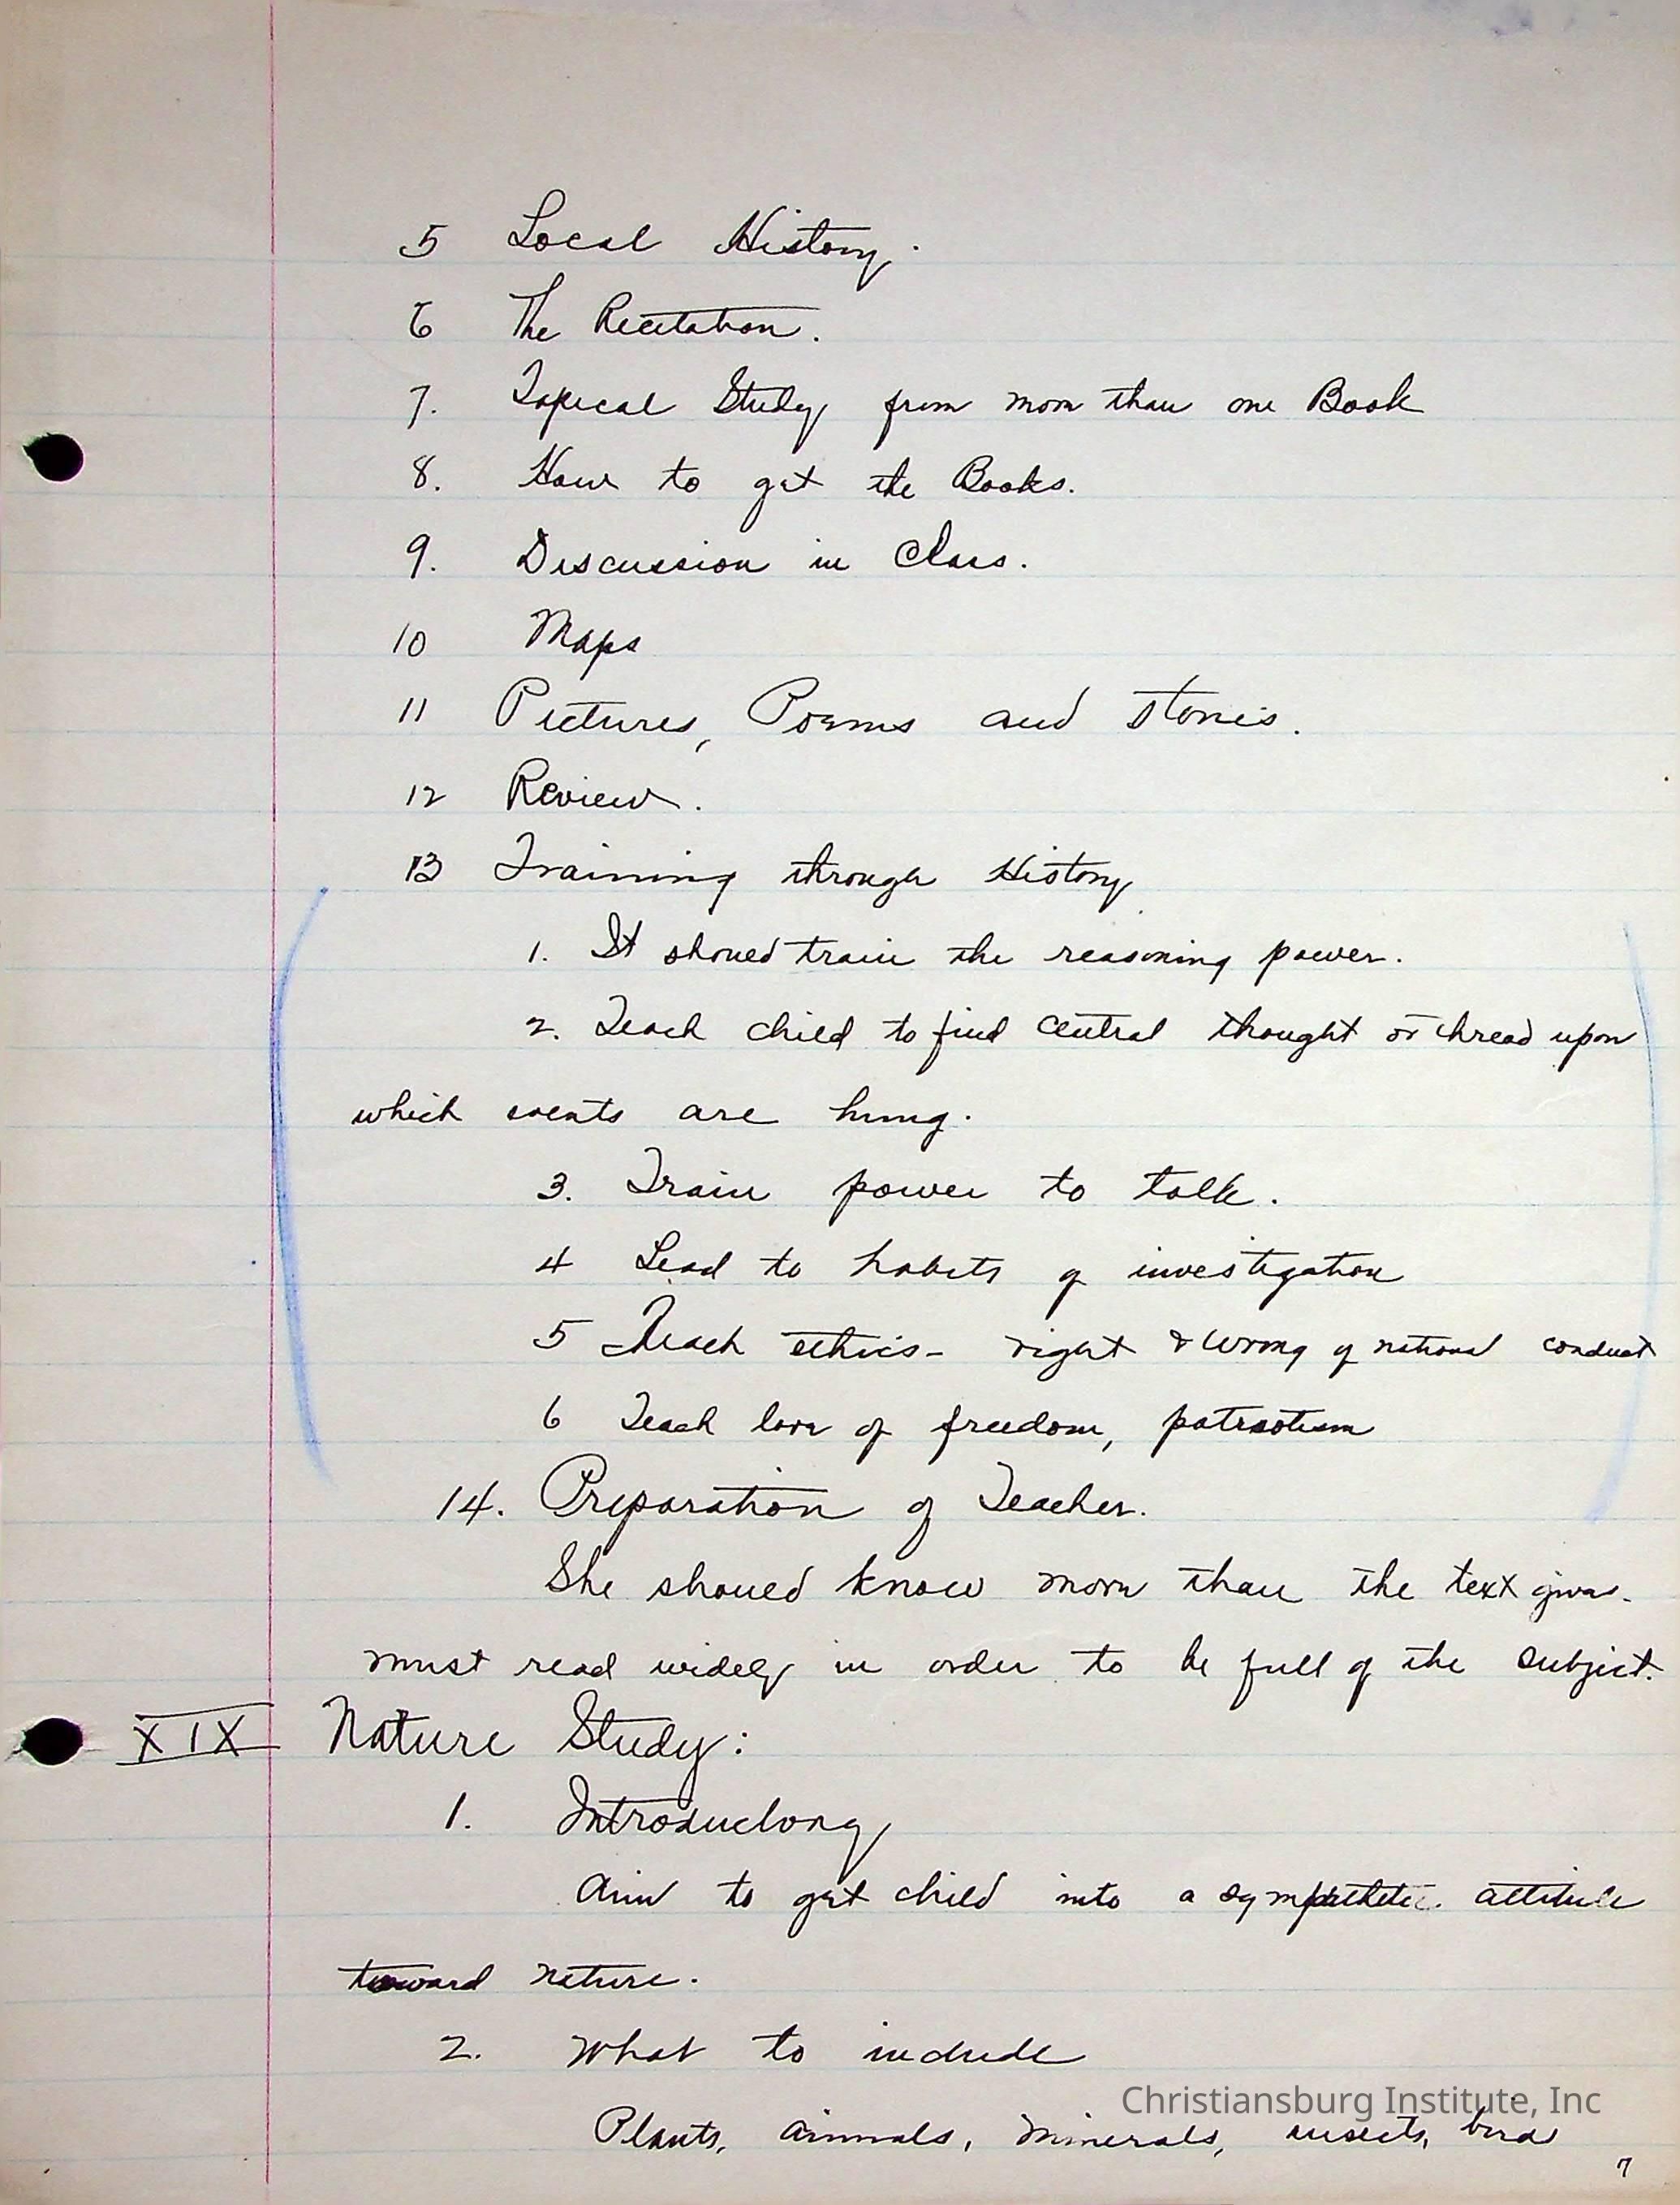 5 Local History.
6 The Recitation.
7. Topical Study from more than one Book
8. How to get the Books.
9. Discussion in Class.
10 Maps
11 Pictures, Poems and stories.
12 Review.
13 Training through History
1. It should train the reasoning power.
2. Teach child to find central thought or thread upon
which events are hung.
3. Train power to talk.
4 Lead to habits of investigation
5 Teach ethics - right & wrong of national conduct
6 Teach love of freedom, patriotism
14. Preparation of Teacher.
She should know more than the text gives.
must read widely in order to be full of the subject.
XIX Nature Study:
1. Introductory
Aim to get child into a sympathetic attitude
toward nature.
2. What to include
Christiansburg Institute, Inc
Plants, animals, minerals, insects, birds
7